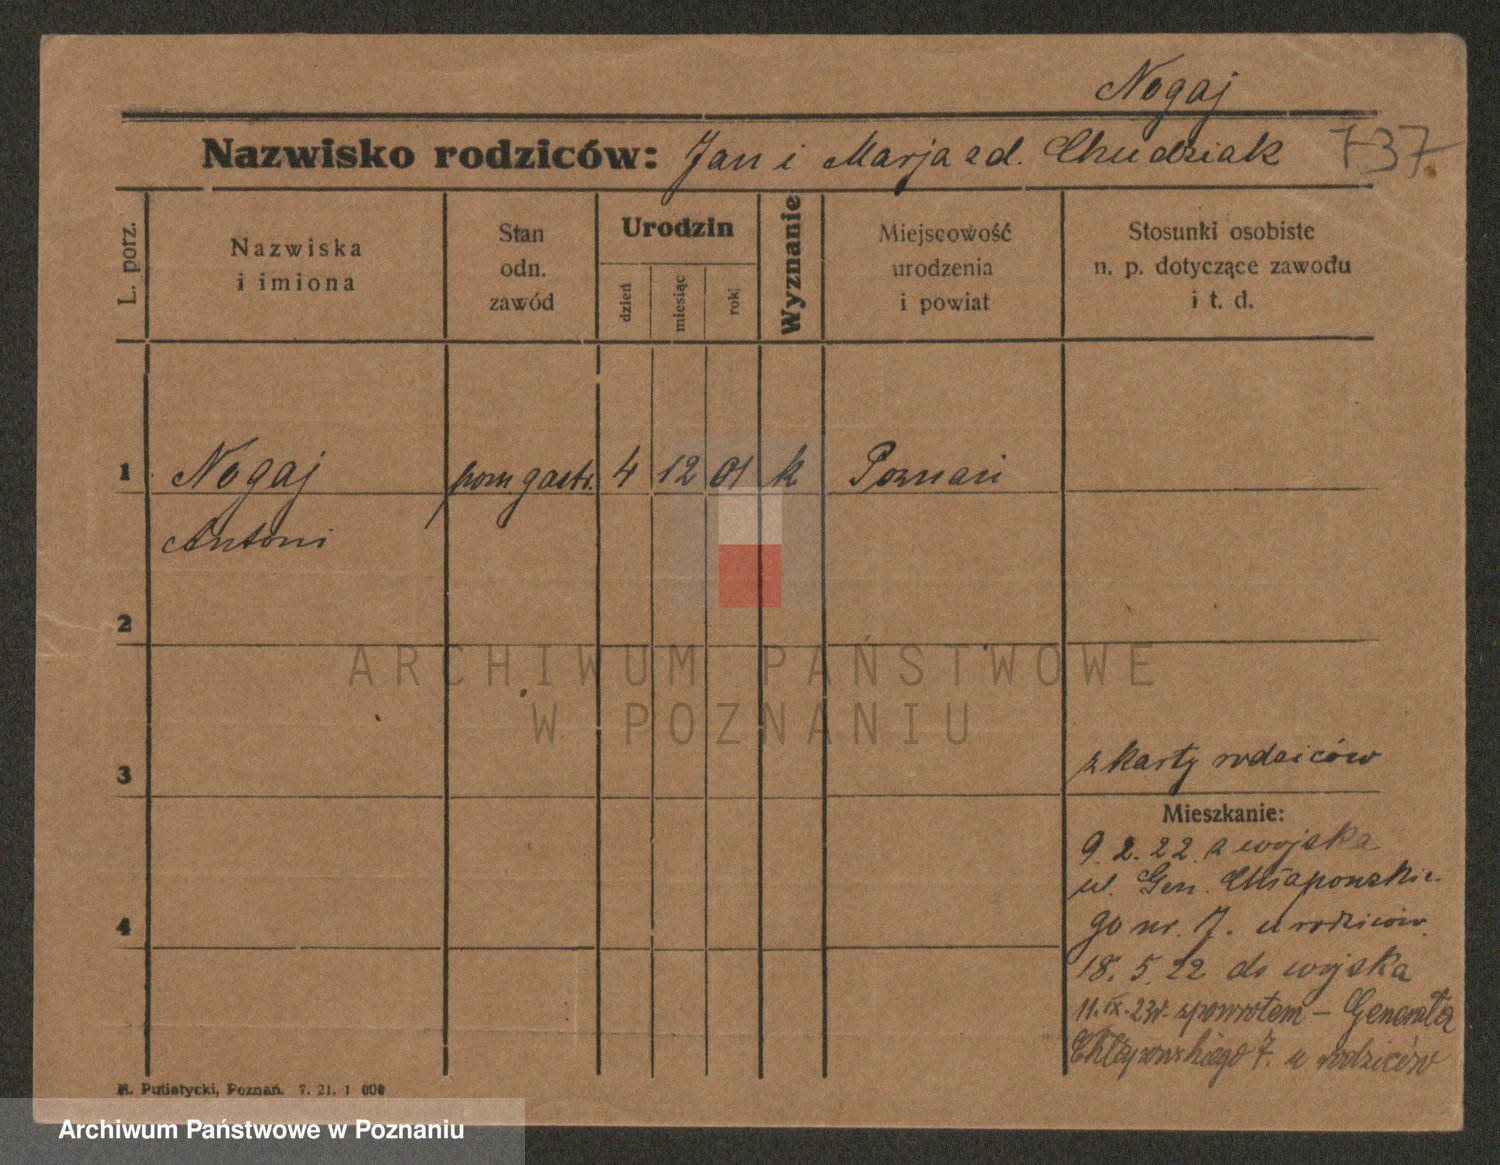 Nogaj
Nazwisko rodziców: Jan i Marja zd. Chudziak 737
L. porz.
Nazwiska
i imiona
Stan
odn.
zawód
Urodzin
dzień
miesiąc
rok
Wyznanie
Miejscowość
urodzenia
i powiat
Stosunki osobiste
n. p. dotyczące zawodu
i t. d.
1 Nogaj pom gastr. 4 12 01 k Poznań
Antoni
2
ARCHIWUM PAŃSTWOWE
W POZNANIU
z karty rodziców
3
Mieszkanie:
9. 2. 22 z wojska
ul. Gen. Chłapowskie-
4
go nr. 7. u rodziców.
18. 5. 22 do wojska
11. IX. 23r. spowrotem – Generała
Chłapowskiego 7. u rodziców
M. Putiatycki, Poznań. 7. 21. 1 000
Archiwum Państwowe w Poznaniu